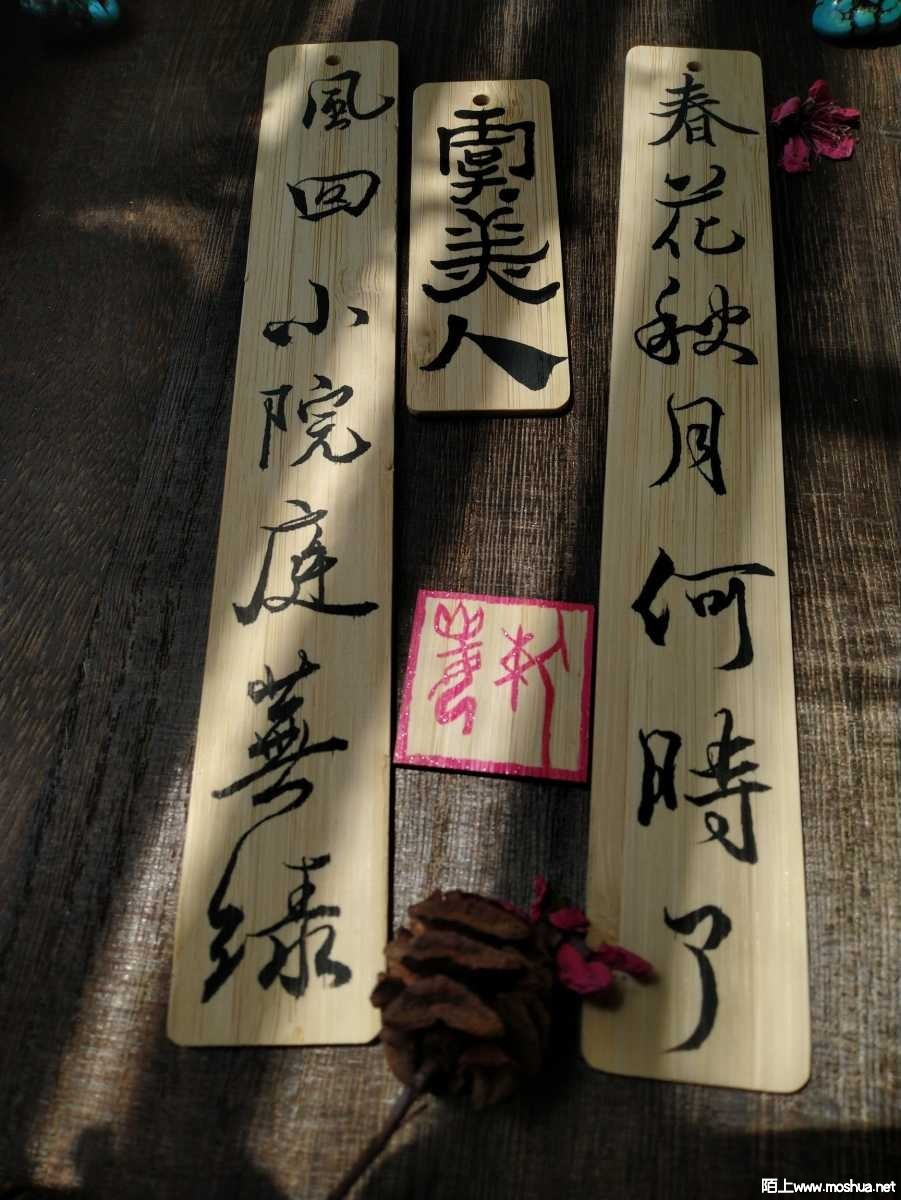 春花秋月何時了
虞美人
風回小院庭蕪綠
陌上www.moshua.net